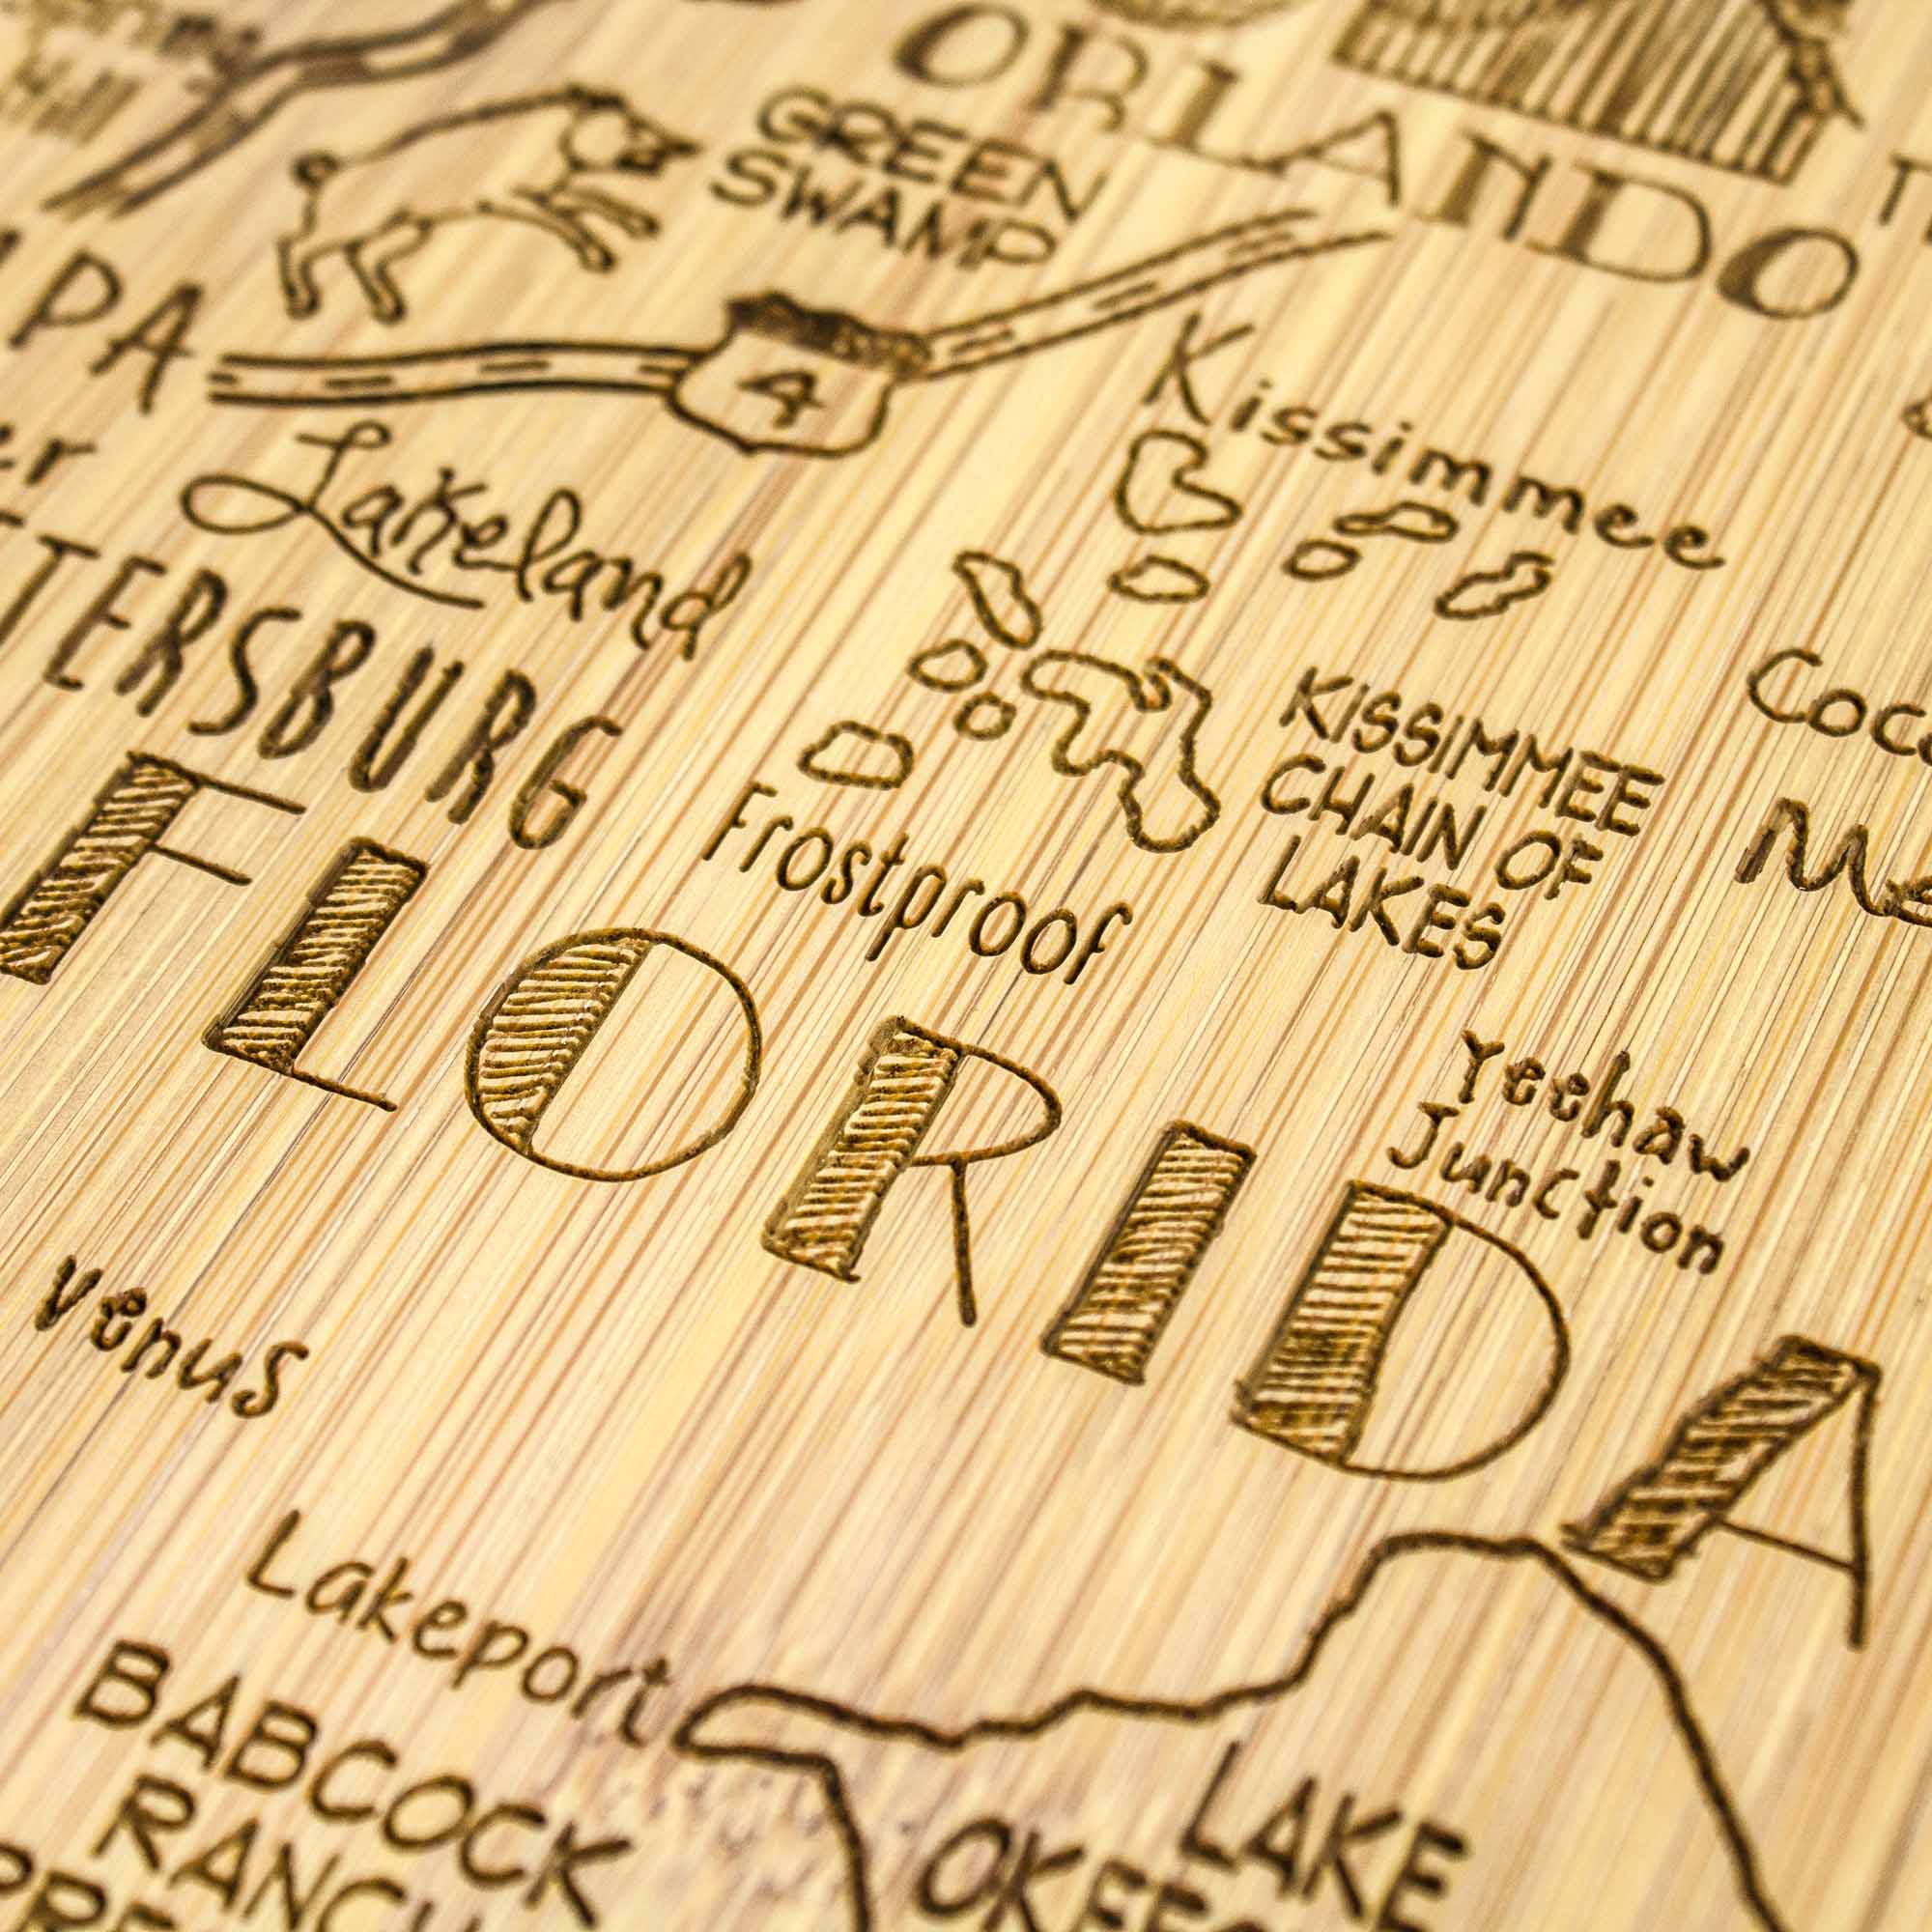 ORLANDO
GREEN
SWAMP
4
PA
er
Kissimmee
Lakeland
TERSBURG
KISSIMMEE
CHAIN OF
LAKES
Coc
Me
Frostproof
FLORIDA
Yeehaw
Junction
Venus
Lakeport
BABCOCK
RANCH
PRE
LAKE
OKEE